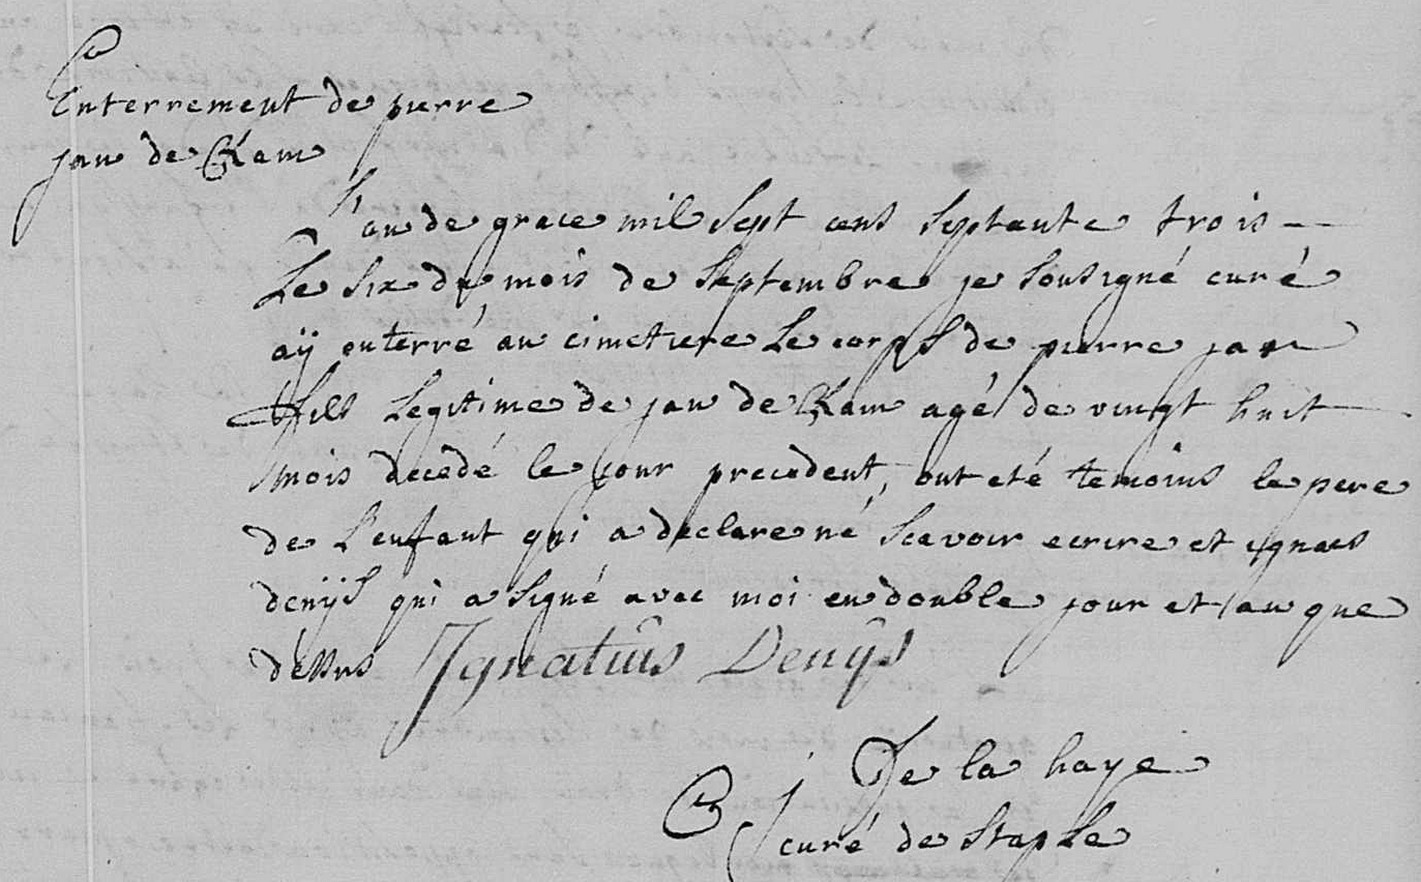 Enterrement de pierre
jan de Ram
L'an de grace mil sept cens septante trois
Le six du mois de septembre je sousigné curé
aÿ enterré au cimetiere Le corps de pierre jan
fils Legitime de jan de Ram agé de vingt huit
mois decedé le jour precedent, ont eté temoins le pere
de L'enfant qui a declare né scavoir ecrire et ignaes
denijs qui a signé avec moi en double jour et an que
dessus Ignatius Denijs
De la haye
curé de staple